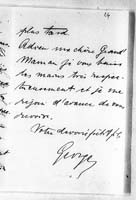 14
plus tard
Adieu ma chère Grand
Maman je vous baise
les mains très respec-
tueusement et je me
rejouis d'avance de vous
revoir.
Votre dévoué petit fils
Georges